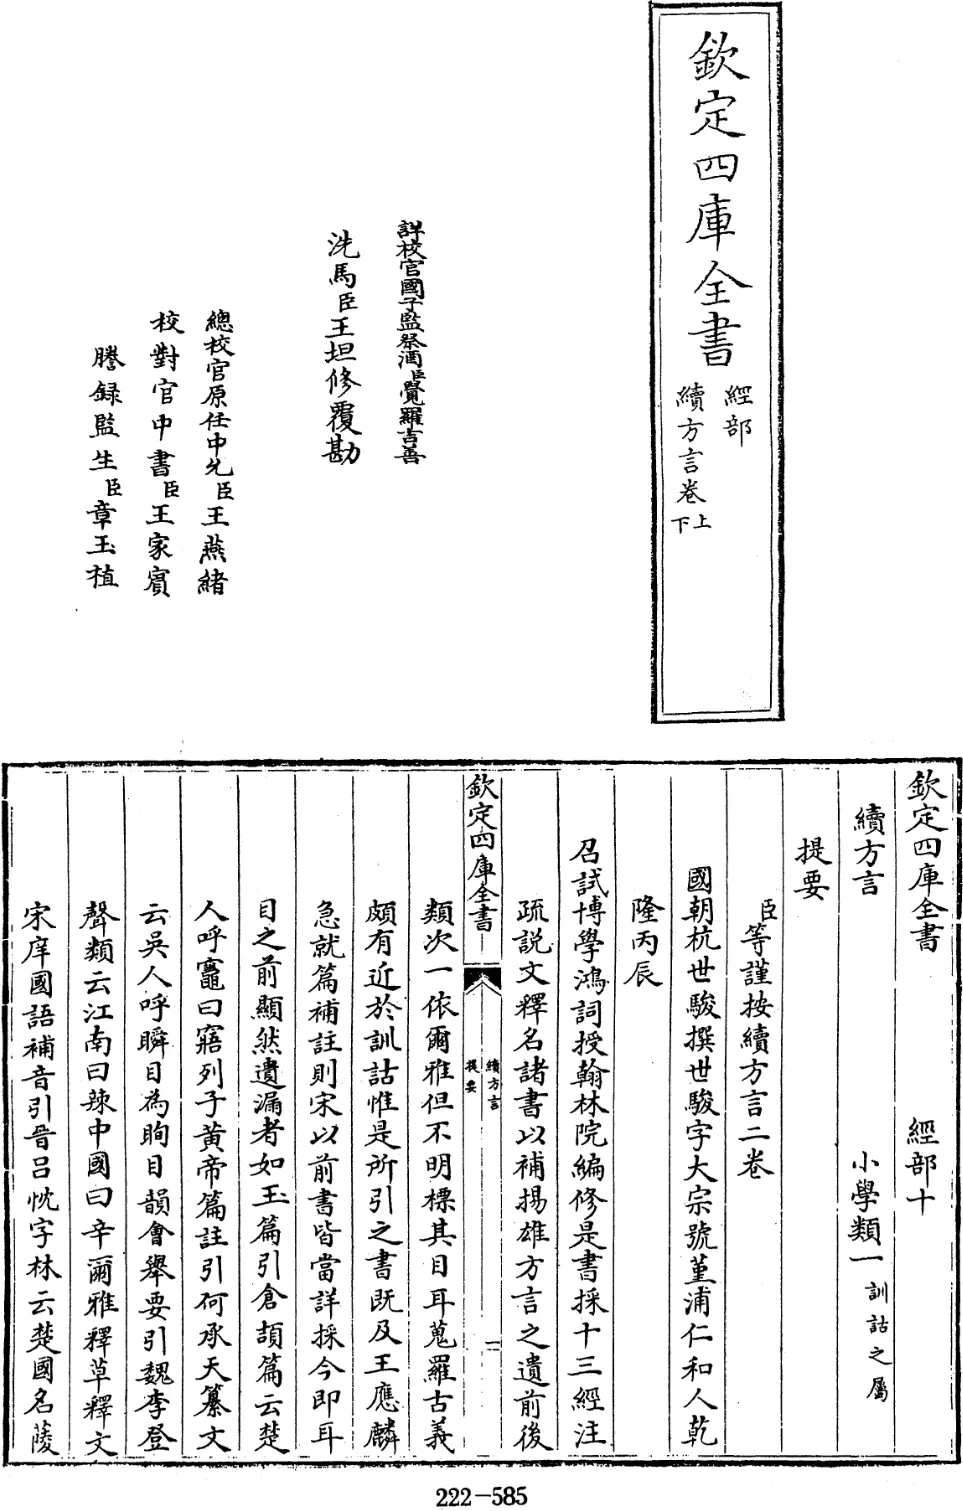 欽定四庫全書
經部
續方言卷上
下
詳校官國子監祭酒臣覺羅吉善
洗馬臣王坦修覆勘
總校官原任中允臣王燕緒
校對官中書臣王家賓
謄録監生臣章玉植
欽定四庫全書 經部十
續方言 小學類一訓詁之屬
提要
臣等謹按續方言二卷
國朝杭世駿撰世駿字大宗號堇浦仁和人乾
隆丙辰
召試博學鴻詞授翰林院編修是書採十三經注
疏説文釋名諸書以補揚雄方言之遺前後
欽定四庫全書
續方言
提要
一
類次一依爾雅但不明標其目耳蒐羅古義
頗有近於訓詁惟是所引之書既及王應麟
急就篇補註則宋以前書皆當詳採今即耳
目之前顯然遺漏者如玉篇引倉頡篇云楚
人呼竈曰寤列子黄帝篇註引何承天纂文
云吳人呼瞬目為眴目韻會舉要引魏李登
聲類云江南曰辣中國曰辛爾雅釋草釋文
宋庠國語補音引晉呂忱字林云楚國名蔆
222-585